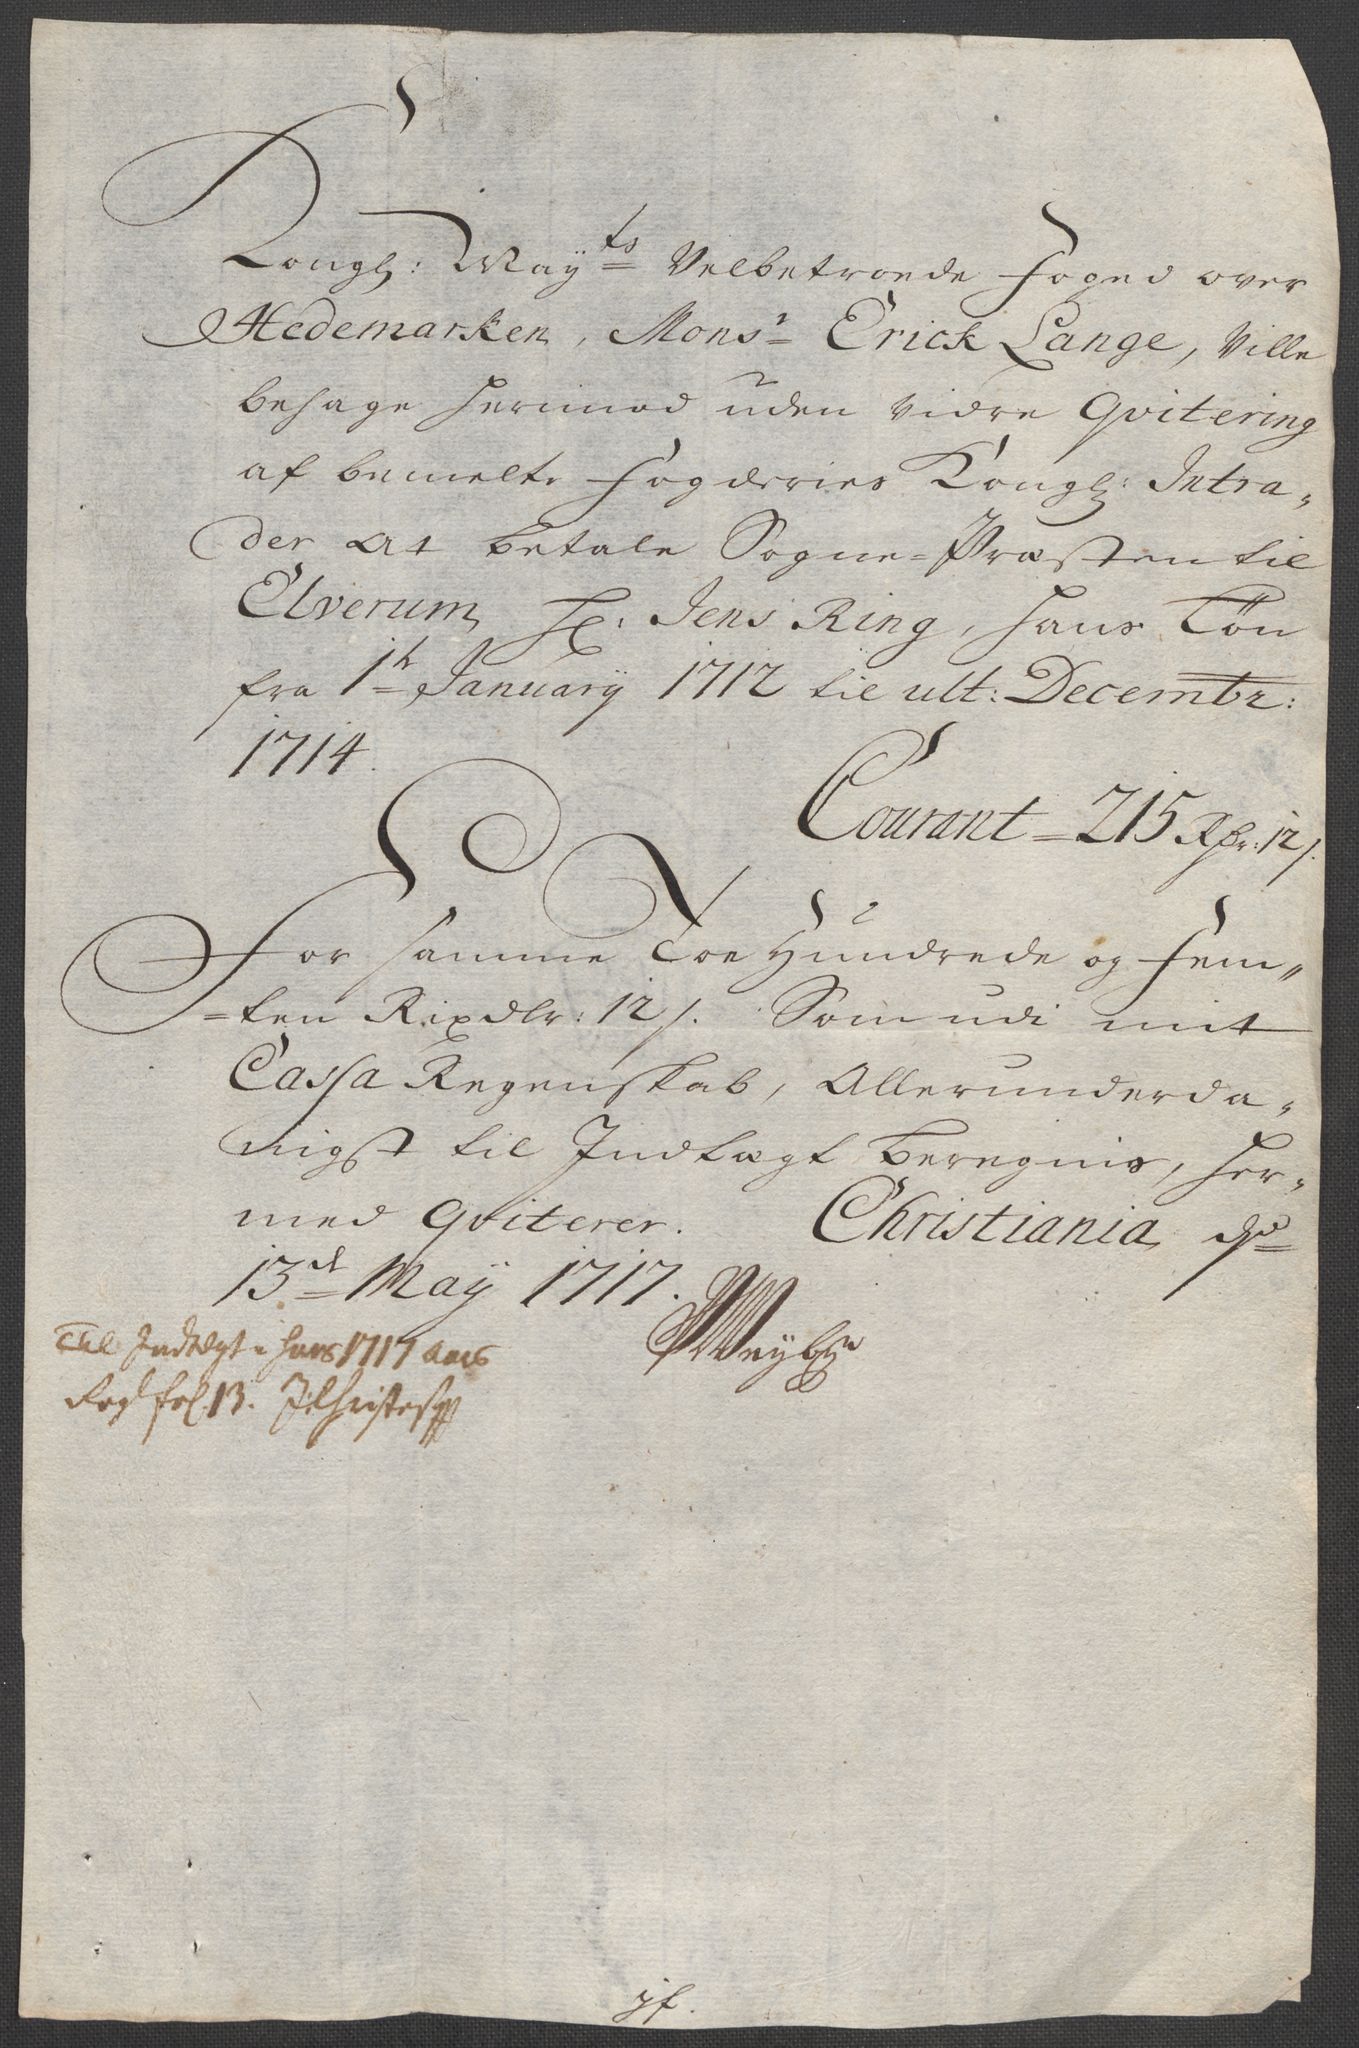 Kongl: May^ts Velbetroede Foged over
Hedemarken, Mons^r Erick Lange, Ville
behage herimod uden vidre Qvitering
af bemelte Fogderies Kongl: Intra-
der at betale Sogne-Præsten til
Elverum, Hr: Jens Ring, hans Løn
fra 1^te January 1712 til ult: Decembr:
1714.
Courant = 215 Rdr: 12 s.
For samme Toe Hundrede og Fem-
-ten Rixdlr: 12 s. Som udi mit
Cassa Regenskab, Allerunderda-
nigst til Indtægt beregnis, her-
med Qviterer. Christiania d:
13^de May 1717.
Til Indtægt i hans 1717 Aars
Regl fol. 13.